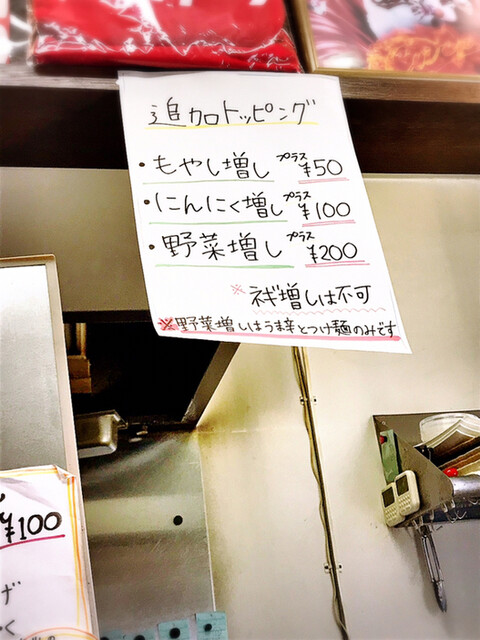 追加トッピング
・もやし増し プラス ¥50
・にんにく増し プラス ¥100
・野菜増し プラス ¥200
※ ネギ増しは不可
※野菜増しはうま辛とつけ麺のみです
¥100